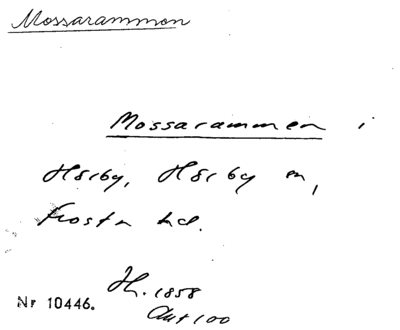 Mossarammen
Mossarammen i
Hörby, Hörby sn,
Frosta hd.
H. 1858
Akt 100
Nr 10446.